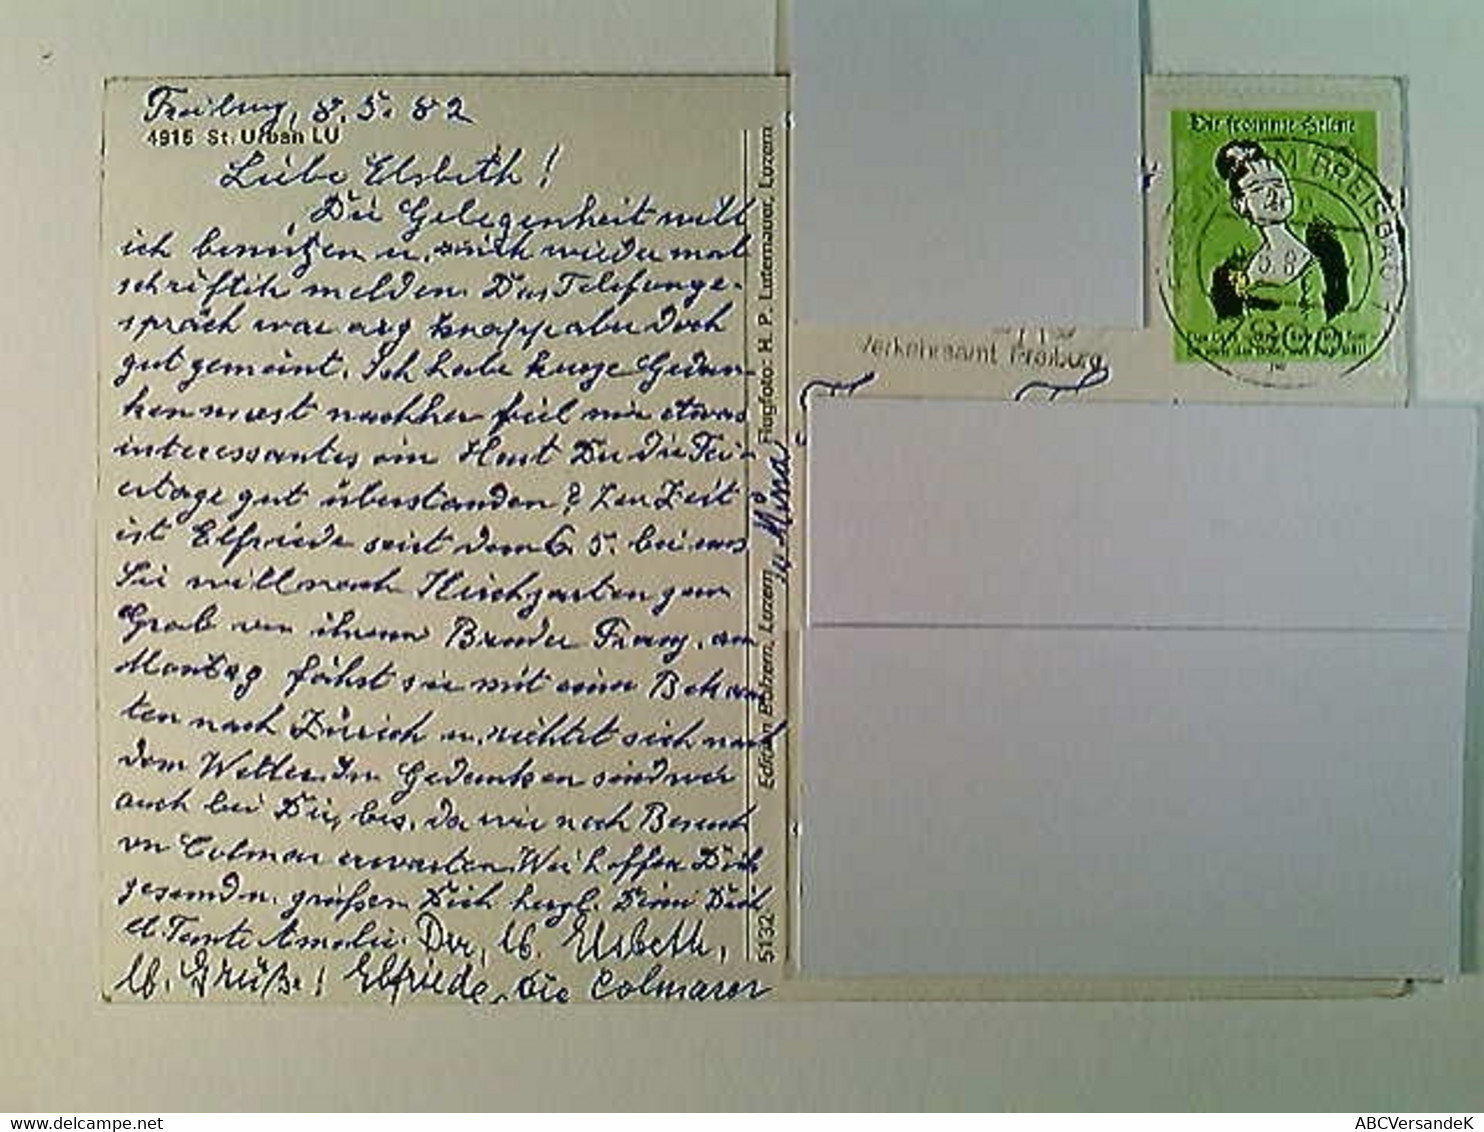 Freiburg, 8. 5. 82
4915 St. Urban LU
Liebe Elsbeth!
Die Gelegenheit will
ich benützen u. mich wieder mal
schriftlich melden. Das Telefonge-
spräch war arg knapp aber doch
gut gemeint. Ich habe kurze Gedan-
ken meist nachher fiel mir etwas
interessantes ein Hast Du die Fei-
ertage gut überstanden? Zur Zeit
ist Elfriede seit dem 6. 5. bei uns
Sie will nach Kirchzarten zum
Grab von ihrem Bruder Franz. am
Montag fährt sie mit einer Bekann
ten nach Zürich u. richtet sich nach
dem Wetter. In Gedanken sind wir
auch bei Dir, bes. da wir noch Besuch
von Colmar erwarten. Wir hoffen Dich
gesund u. grüßen Dich herzl. Deine Dich
Tante Amalie. Dir, lb. Elsbeth,
lb. Grüße! Elfriede, die Colmarer
u Mina
Flugfoto: H. P. Luternauer, Luzern
Edition Luzern
5132
Verkehrsamt Freiburg
Die fromme Helene
IM BREISGAU
5.8